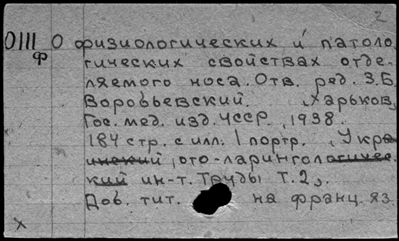 2
О111 О физиологических и патоло-
ф гических свойствах отде-
ляемого носа. Отв. ред. З.Б.
Воробьевский. Харьков,
Гос. мед. изд. УССР, 1938.
184 стр. с илл. 1 портр. (Укра-
инский ото-ларингологичес-
кий ин-т. Труды т. 2).
Доб. тит. на франц. яз.
x